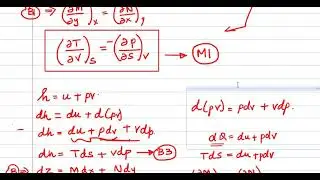 B1 ⇒ (∂M/∂y)ₓ = (∂N/∂x)ᵧ
(∂T/∂v)ₛ = -(∂p/∂s)ᵥ → M1
h = u + pv
dh = du + d(pv)
dh = du + pdv + vdp
dh = Tds + vdp → B3
dz = Mdx + Ndy
d(pv) = pdv + vdp
dQ = du + pdv
Tds = du + pdv